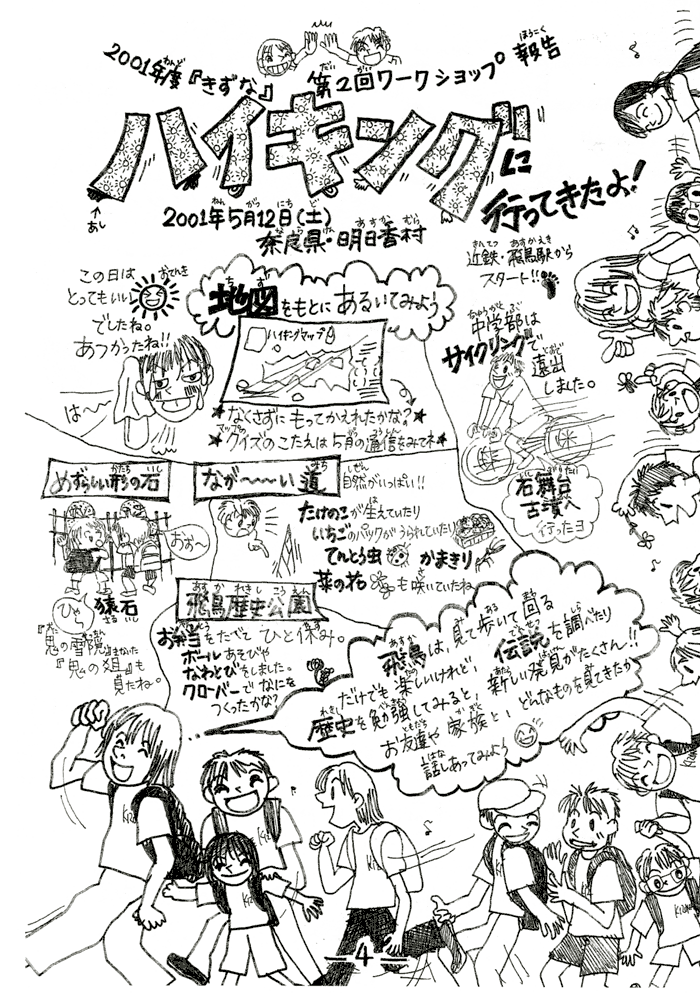 2001年度『きずな』 第2回ワークショップ 報告
ハイキングに
行ってきたよ!
↑あし
2001年5月12日(土)
奈良県・明日香村
近鉄・飛鳥駅から
スタート!!
この日は
とってもいい おてんき
でしたね。
あつかったね!!
は〜〜
地図をもとに あるいてみよう
ハイキングマップ
★なくさずに もってかえれたかな?★
★クイズのこたえは 5月の通信をみてネ★
中学部は
サイクリングで
遠出
しました。
石舞台
古墳へ
行ったヨ
めずらしい形の石
おぉ〜
ひゃら
猿石
『鬼の雪隠』
『鬼の俎』も
見たね。
なが〜〜〜い 道
自然がいっぱい!!
たけのこが生えていたり
いちごのパックが うられていたり
てんとう虫 かまきり
菜の花も咲いていたね
飛鳥歴史公園
お弁当をたべて ひと休み。
ボールあそびや
なわとびをしました。
クローバーで なにを
つくったかな?
飛鳥は、見て歩いて回る
だけでも楽しいけれど、伝説を調べたり
歴史を勉強してみると、新しい発見がたくさん!!
お友達や家族と、どんなものを見てきたか
話しあってみよう
Kiz
Kiz
Kiz
—4—